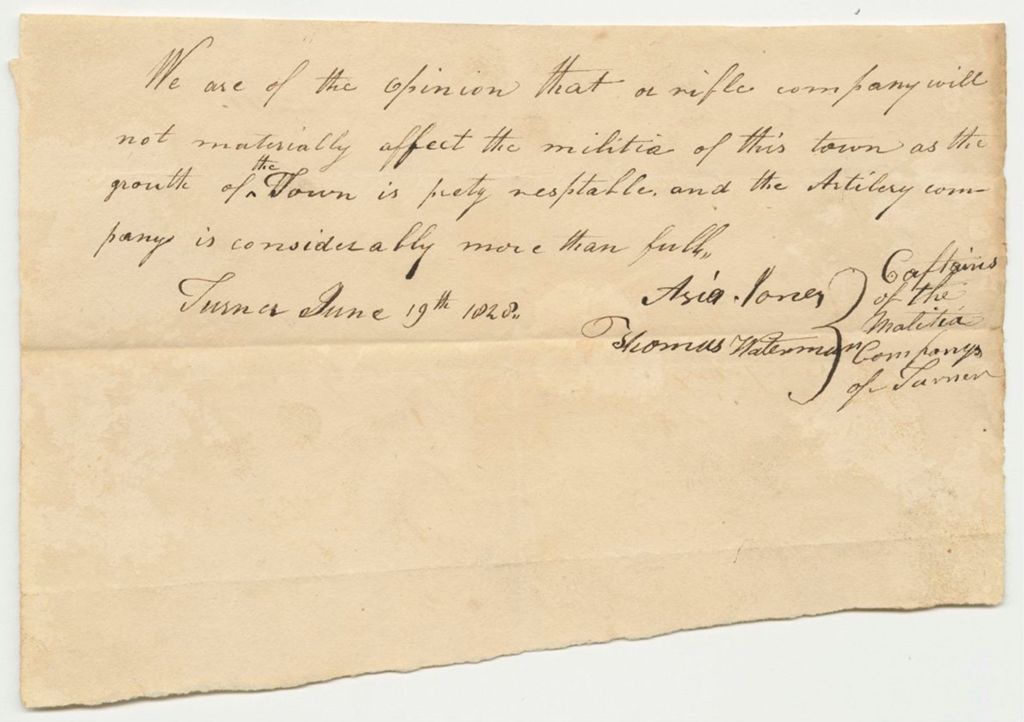 We are of the Opinion that a rifle company will
not materially affect the militia of this town as the
growth of the Town is prety resptable. and the Artilery com-
pany is considerably more than full,,
Turner June 19th 1828,,
Asia Jones
Thomas Waterman
Captains
of the
Malitia
Companys
of Turner